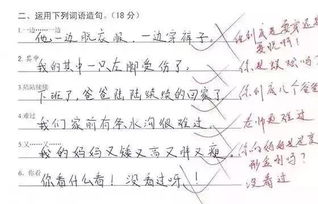 二、运用下列词语造句。(18分)
1.一边……一边
他一边脱衣服,一边穿裤子。
他到底是要穿还是要脱啊!
2.其中
我的其中一只左脚受伤了。
你是蜈蚣吗?
3.陆陆续续
下班了,爸爸陆陆续续的回家了
你到底几个爸爸
4.难过
我们家前有条水沟很难过。
老师更难过
5.又……又……
我的妈妈又矮又高又胖又瘦。
你的妈妈是变形金刚吗?
6.你看
你看什么看!没看过呀!
没看过